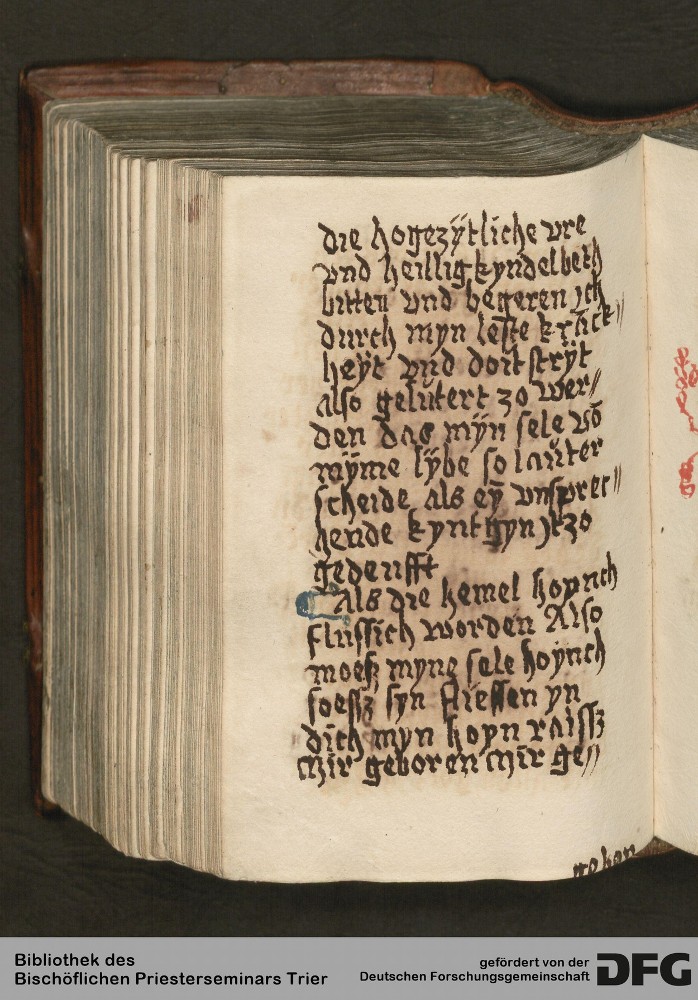 die hogezÿtliche vre
vnd heillig kyndelbeth
bitten vnd begeren jch
durch myn leste kranck〃
heÿt vnd doitstrÿt
also gelutert zo wer〃
den das mÿn sele vō
mÿme lÿbe so lauter
scheide als eÿ vnsprec〃
hende kynt hyn jtzo
gedeufft
Als die hemel hoynch
flussich worden Also
moess myne sele hoÿnch
soessz syn fliessen yn
dich myn hoyn raissz
mir geboren mir ge〃
geben
Bibliothek des
Bischöflichen Priesterseminars Trier
gefördert von der
Deutschen Forschungsgemeinschaft
DFG